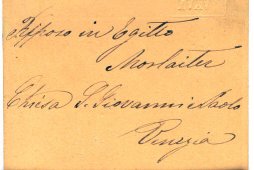 Riposo in Egitto
Morlaiter
Chiesa S. Giovanni e Paolo
Venezia